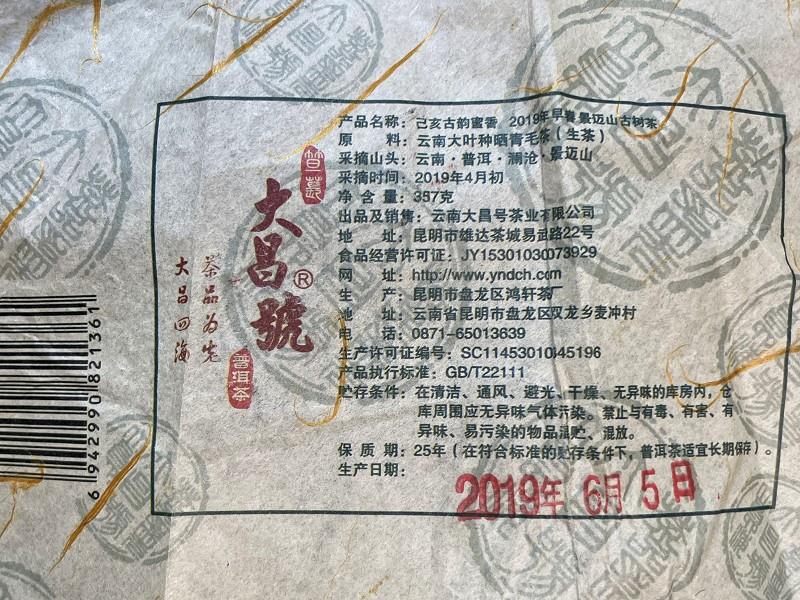 产品名称：己亥古韵蜜香 2019年早春景迈山古树茶
原 料：云南大叶种晒青毛茶（生茶）
采摘山头：云南·普洱·澜沧·景迈山
采摘时间：2019年4月初
净 含 量：357克
出品及销售：云南大昌号茶业有限公司
地 址：昆明市雄达茶城易武路22号
食品经营许可证：JY15301030073929
网 址：http://www.yndch.com
生 产：昆明市盘龙区鸿轩茶厂
地 址：云南省昆明市盘龙区双龙乡麦冲村
电 话：0871-65013639
生产许可证编号：SC11453010345196
产品执行标准：GB/T22111
贮存条件：在清洁、通风、避光、干燥、无异味的库房内，仓
库周围应无异味气体污染。禁止与有毒、有害、有
异味、易污染的物品混贮、混放。
保 质 期：25年（在符合标准的贮存条件下，普洱茶适宜长期保存）。
生产日期：
2019年 6月 5日
大昌號®
普洱茶
茶品为先
大昌四海
6 942990 821361